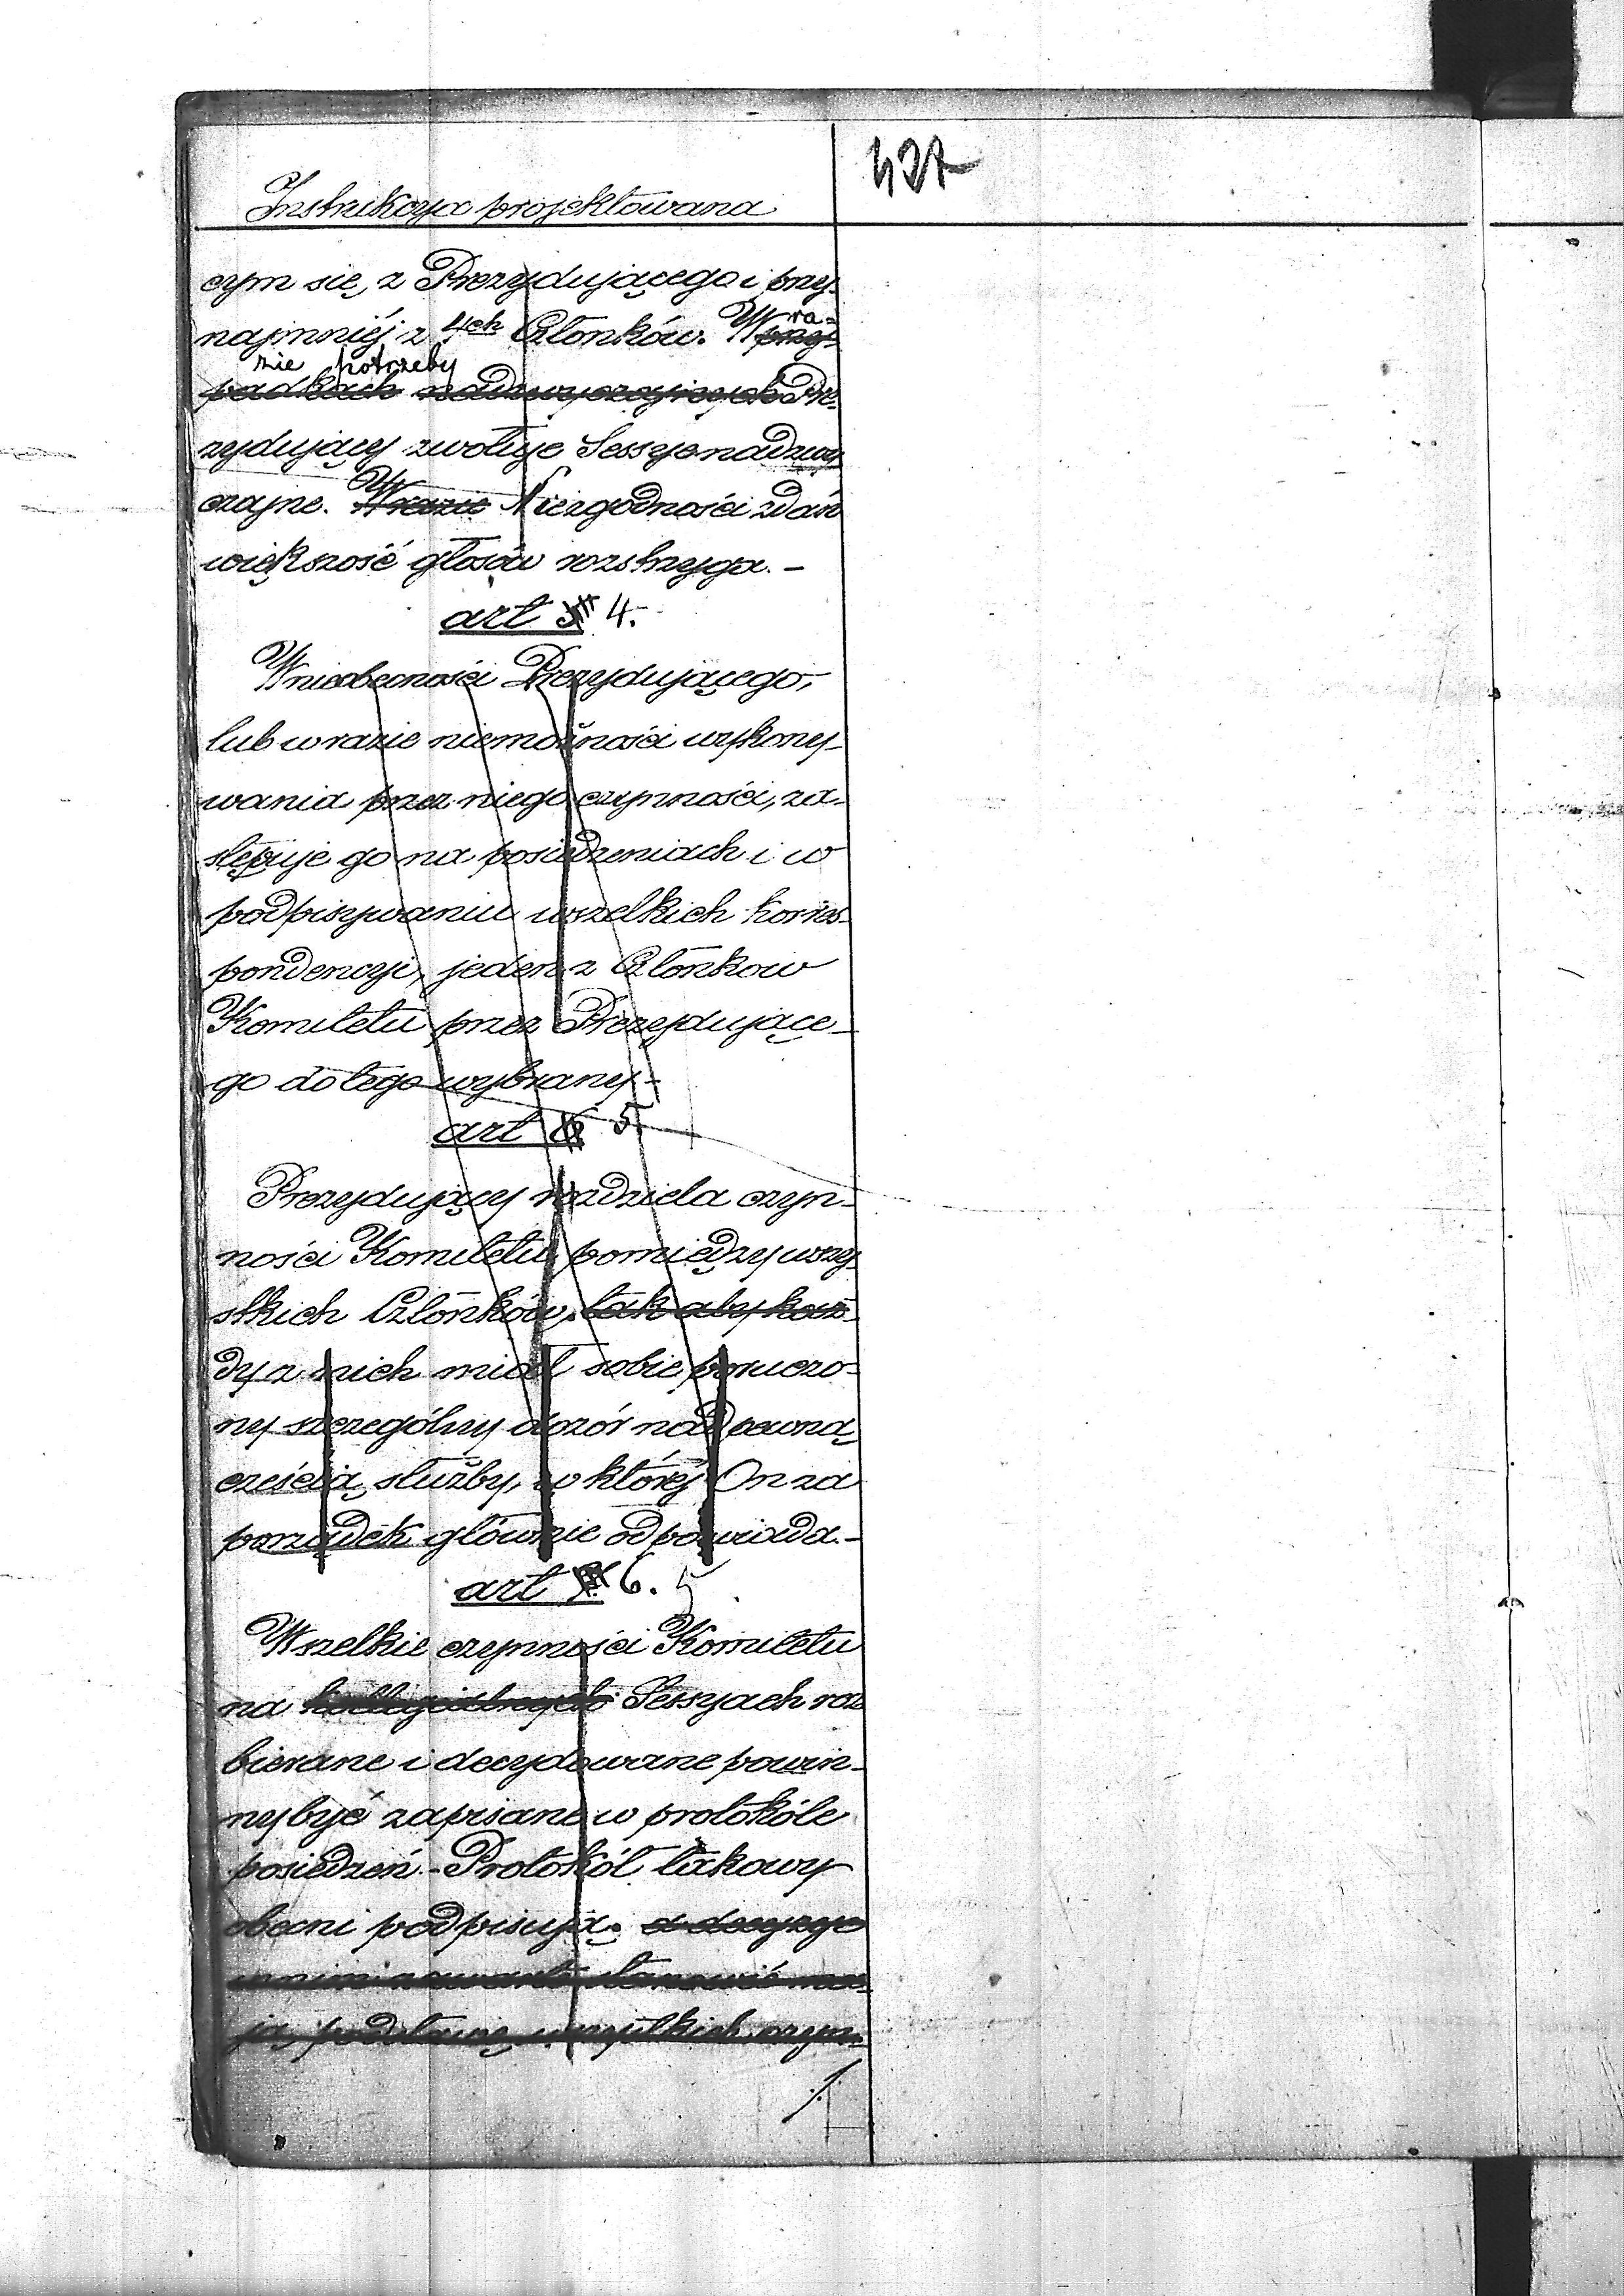 437
Instrukcya projektowana
czym się, z Prezydującego i przy-
najmniéj z 4ch Członków. W przy-
ra=
zie potrzeby
padkach nadzwyczajnych Pre-
zydujący zwołuje Sessye nadzwy
czajne. W razie Niezgodności zdań
większość głosów rozstrzyga. -
art 4.
W nieobecności Prezydującego,
lub w razie niemożności wykony-
wania przez niego czynności, za-
stępuje go na posiedzeniach i w
podpisywaniu wszelkich korres-
pondencyi, jeden z Członkow
Komitetu przez Prezydujące-
go do tego wybrany -
art 6 5
Prezydujący rozdziela czyn-
ności Komitetu pomiędzy wszy-
stkich Członków, tak aby każ-
dy z nich miał sobie poruczo-
ny szczególny dozór nad pewną
częścią służby, w której On za
porządek głównie odpowiada. -
art 6. 5
Wszelkie czynności Komitetu
na kollegialnych Sessyach roz
bierane i decydowane powin-
ny być zapisane w protokóle
posiedzeń. - Protokół takowy
obecni podpisują. a decyzye
w nim zawarte stanowić ma-
ją podstawę wszystkich czyn-
./.